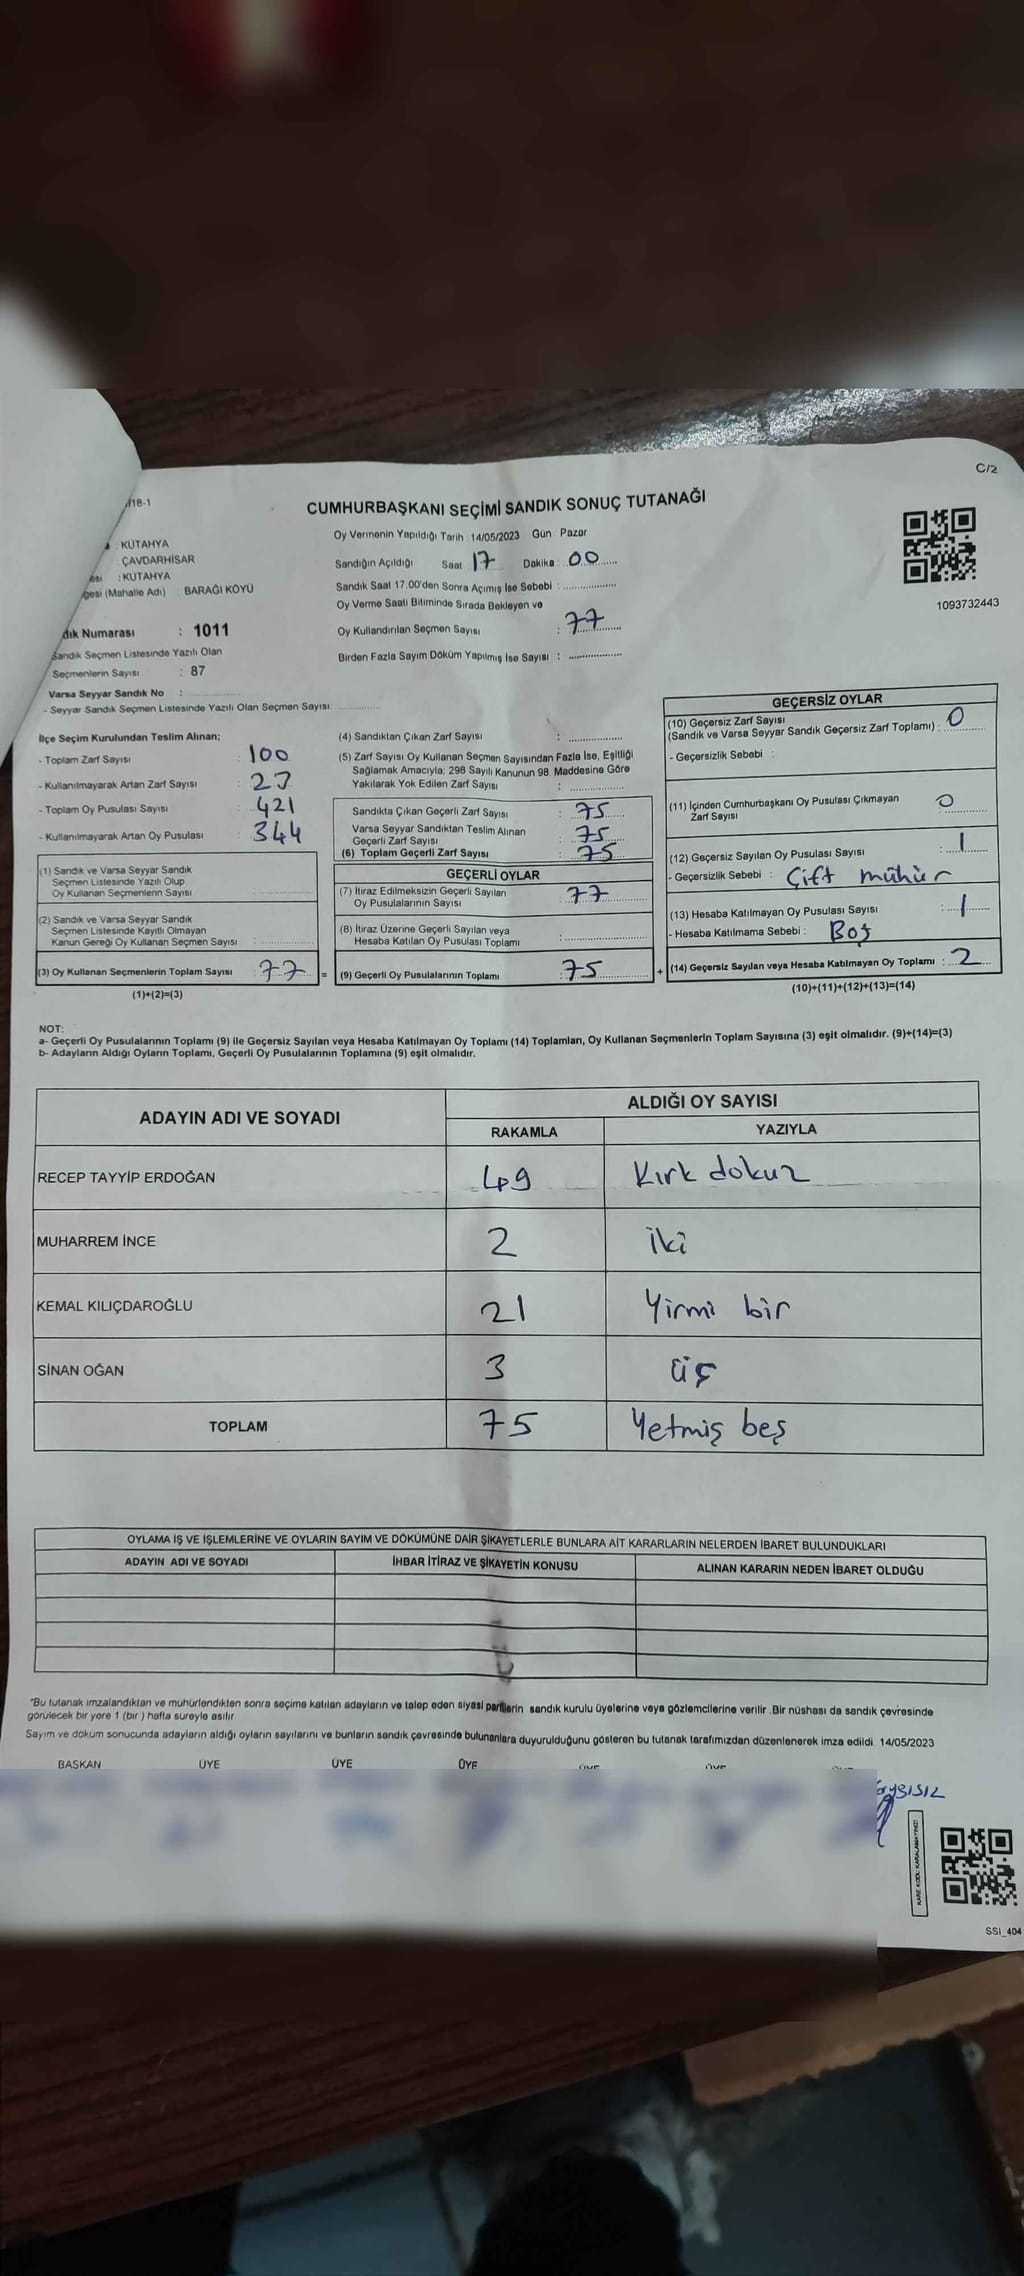 C/2
/18-1
CUMHURBAŞKANI SEÇİMİ SANDIK SONUÇ TUTANAĞI
: KÜTAHYA
ÇAVDARHİSAR
: KÜTAHYA
(Mahalle Adı) BARAĞI KÖYÜ
Oy Vermenin Yapıldığı Tarih :14/05/2023 Gün Pazar
Sandığın Açıldığı Saat 17 Dakika : 00
Sandık Saat 17.00'den Sonra Açımış İse Sebebi :
Oy Verme Saati Bitiminde Sırada Bekleyen ve
Oy Kullandırılan Seçmen Sayısı : 77
Birden Fazla Sayım Döküm Yapılmış İse Sayısı :
1093732443
Numarası : 1011
Sandık Seçmen Listesinde Yazılı Olan
Seçmenlerin Sayısı : 87
Varsa Seyyar Sandık No :
- Seyyar Sandık Seçmen Listesinde Yazılı Olan Seçmen Sayısı:
İlçe Seçim Kurulundan Teslim Alınan;
- Toplam Zarf Sayısı : 100
- Kullanılmayarak Artan Zarf Sayısı : 23
- Toplam Oy Pusulası Sayısı : 421
- Kullanılmayarak Artan Oy Pusulası : 344
(1) Sandık ve Varsa Seyyar Sandık
Seçmen Listesinde Yazılı Olup
Oy Kullanan Seçmenlerin Sayısı :
(2) Sandık ve Varsa Seyyar Sandık
Seçmen Listesinde Kayıtlı Olmayan
Kanun Gereği Oy Kullanan Seçmen Sayısı :
(3) Oy Kullanan Seçmenlerin Toplam Sayısı : 77 =
(1)+(2)=(3)
(4) Sandıktan Çıkan Zarf Sayısı :
(5) Zarf Sayısı Oy Kullanan Seçmen Sayısından Fazla İse, Eşitliği
Sağlamak Amacıyla; 298 Sayılı Kanunun 98. Maddesine Göre
Yakılarak Yok Edilen Zarf Sayısı :
Sandıkta Çıkan Geçerli Zarf Sayısı : 75
Varsa Seyyar Sandıktan Teslim Alınan
Geçerli Zarf Sayısı : 75
(6) Toplam Geçerli Zarf Sayısı : 75
GEÇERLİ OYLAR
(7) İtiraz Edilmeksizin Geçerli Sayılan
Oy Pusulalarının Sayısı : 77
(8) İtiraz Üzerine Geçerli Sayılan veya
Hesaba Katılan Oy Pusulası Toplamı :
(9) Geçerli Oy Pusulalarının Toplamı : 75 +
GEÇERSİZ OYLAR
(10) Geçersiz Zarf Sayısı
(Sandık ve Varsa Seyyar Sandık Geçersiz Zarf Toplamı) : 0
- Geçersizlik Sebebi :
(11) İçinden Cumhurbaşkanı Oy Pusulası Çıkmayan
Zarf Sayısı 0
(12) Geçersiz Sayılan Oy Pusulası Sayısı : 1
- Geçersizlik Sebebi : Çift mühür
(13) Hesaba Katılmayan Oy Pusulası Sayısı : 1
- Hesaba Katılmama Sebebi : Boş
(14) Geçersiz Sayılan veya Hesaba Katılmayan Oy Toplamı : 2
(10)+(11)+(12)+(13)=(14)
NOT:
a- Geçerli Oy Pusulalarının Toplamı (9) ile Geçersiz Sayılan veya Hesaba Katılmayan Oy Toplamı (14) Toplamları, Oy Kullanan Seçmenlerin Toplam Sayısına (3) eşit olmalıdır. (9)+(14)=(3)
b- Adayların Aldığı Oyların Toplamı, Geçerli Oy Pusulalarının Toplamına (9) eşit olmalıdır.
ADAYIN ADI VE SOYADI
ALDIĞI OY SAYISI
RAKAMLA YAZIYLA
RECEP TAYYİP ERDOĞAN 49 Kırk dokuz
MUHARREM İNCE 2 iki
KEMAL KILIÇDAROĞLU 21 Yirmi bir
SİNAN OĞAN 3 üç
TOPLAM 75 Yetmiş beş
OYLAMA İŞ VE İŞLEMLERİNE VE OYLARIN SAYIM VE DÖKÜMÜNE DAİR ŞİKAYETLERLE BUNLARA AİT KARARLARIN NELERDEN İBARET BULUNDUKLARI
ADAYIN ADI VE SOYADI İHBAR İTİRAZ VE ŞİKAYETİN KONUSU ALINAN KARARIN NEDEN İBARET OLDUĞU
*Bu tutanak imzalandıktan ve mühürlendikten sonra seçime katılan adayların ve talep eden siyasi partilerin sandık kurulu üyelerine veya gözlemcilerine verilir .Bir nüshası da sandık çevresinde
görülecek bir yere 1 (bir ) hafta süreyle asılır.
Sayım ve döküm sonucunda adayların aldığı oyların sayılarını ve bunların sandık çevresinde bulunanlara duyurulduğunu gösteren bu tutanak tarafımızdan düzenlenerek imza edildi. 14/05/2023
BAŞKAN ÜYE ÜYE ÜYE ÜYE ÜYE
KARE KODU KARALAMAYINIZ!
SSI_404